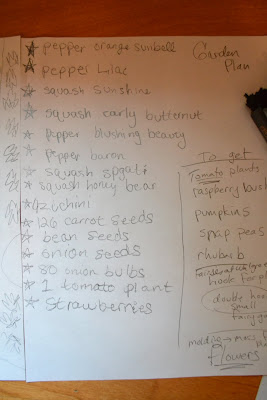 pepper orange sunball
pepper Lilac
squash Sunshine
squash early butternut
pepper blushing beauty
pepper baron
squash spgati
squash honey bear
zuchini
126 carrot seeds
bean seeds
onion seeds
80 onion bulbs
1 tomato plant
Strawberries
Garden
Plan
To get
Tomato plants
raspberry bush
pumpkins
snap peas
rhubarb
hook for
double hook
small
fairy
molding
Flowers